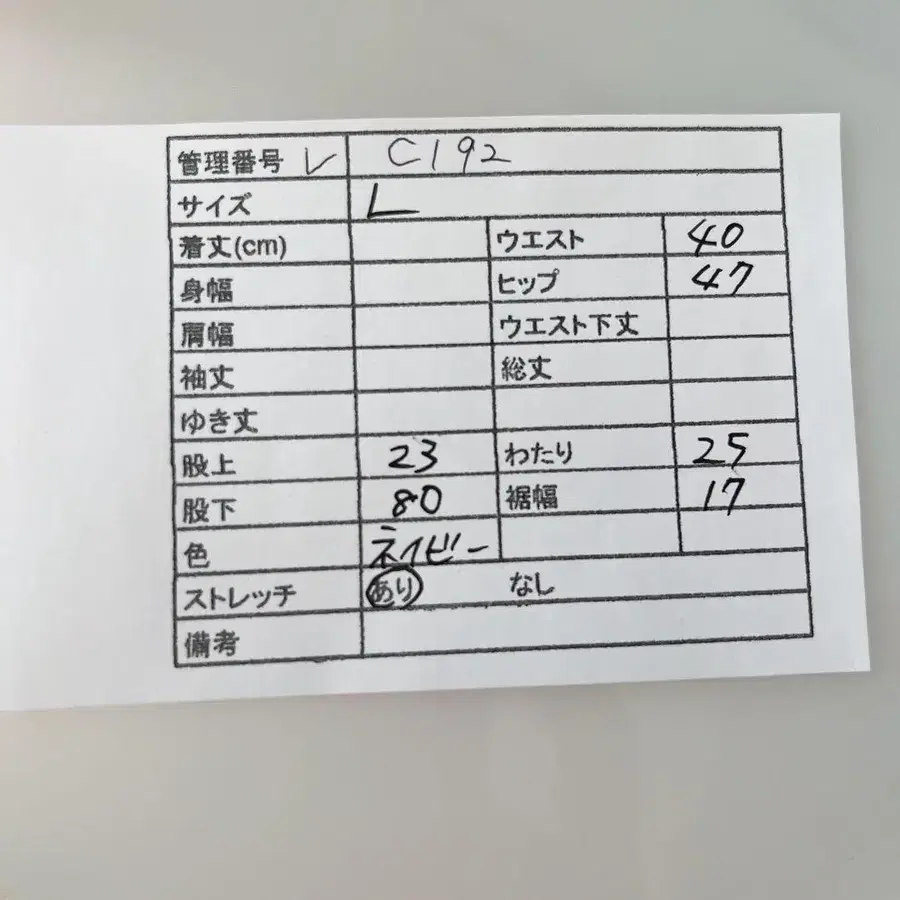 管理番号 レ C192
サイズ L
着丈(cm) ウエスト 40
身幅 ヒップ 47
肩幅 ウエスト下丈
袖丈 総丈
ゆき丈
股上 23 わたり 25
股下 80 裾幅 17
色 ネイビー
ストレッチ あり なし
備考